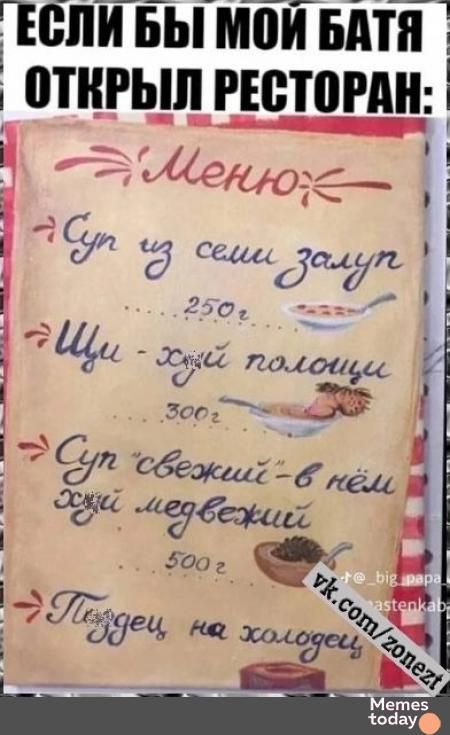 ЕСЛИ БЫ МОЙ БАТЯ
ОТКРЫЛ РЕСТОРАН:
Меню
Суп из семи залуп
250г
Щи - хуй полощи
300г
Суп "свежий" - в нём
хуй медвежий
500г
Пиздец на холодец
@_big_papa_
vk.com/zonezt
Memes
today